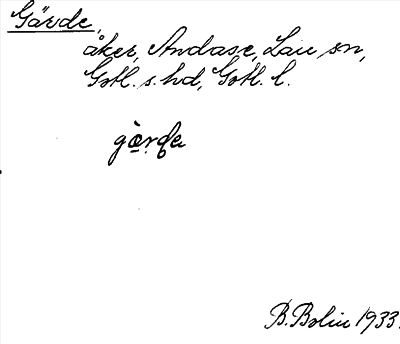 Gärde,
åker, Andarse, Lau sn,
Gotl. s. hd, Gotl. l.
gæ̀rđe
B. Bolin 1933.